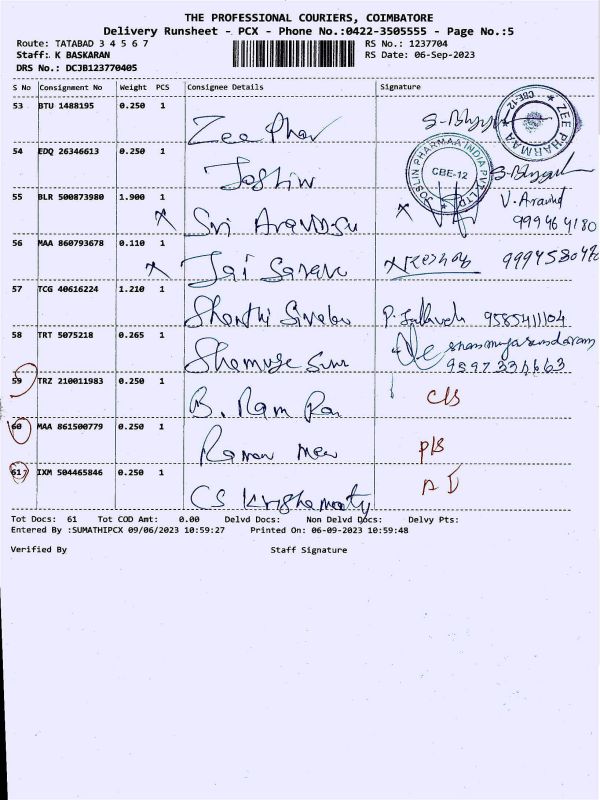 THE PROFESSIONAL COURIERS, COIMBATORE
Delivery Runsheet - PCX - Phone No.:0422-3505555 - Page No.:5
Route: TATABAD 3 4 5 6 7 RS No.: 1237704
Staff: K BASKARAN RS Date: 06-Sep-2023
DRS No.: DCJB123770405
S No Consignment No Weight PCS Consignee Details Signature
53 BTU 1488195 0.250 1
Zee Phar
ZEE PHARMAA CBE-12
54 EDQ 26346613 0.250 1
Joslin
JOSLIN PHARMAA INDIA PVT LTD CBE-12
55 BLR 500873980 1.900 1 V. Aravind
Sri Aravindsu
56 MAA 860793678 0.110 1
Jai Saran
57 TCG 40616224 1.210 1
Shanthi 9585411104
58 TRT 5075218 0.265 1 shanmugasundaram
59 TRZ 210011983 0.250 1
B. Ram
60 MAA 861500779 0.250 1
Raman
61 IXM 504465846 0.250 1
CS
Tot Docs: 61 Tot COD Amt: 0.00 Delvd Docs: Non Delvd Docs: Delvy Pts:
Entered By :SUMATHIPCX 09/06/2023 10:59:27 Printed On: 06-09-2023 10:59:48
Verified By Staff Signature